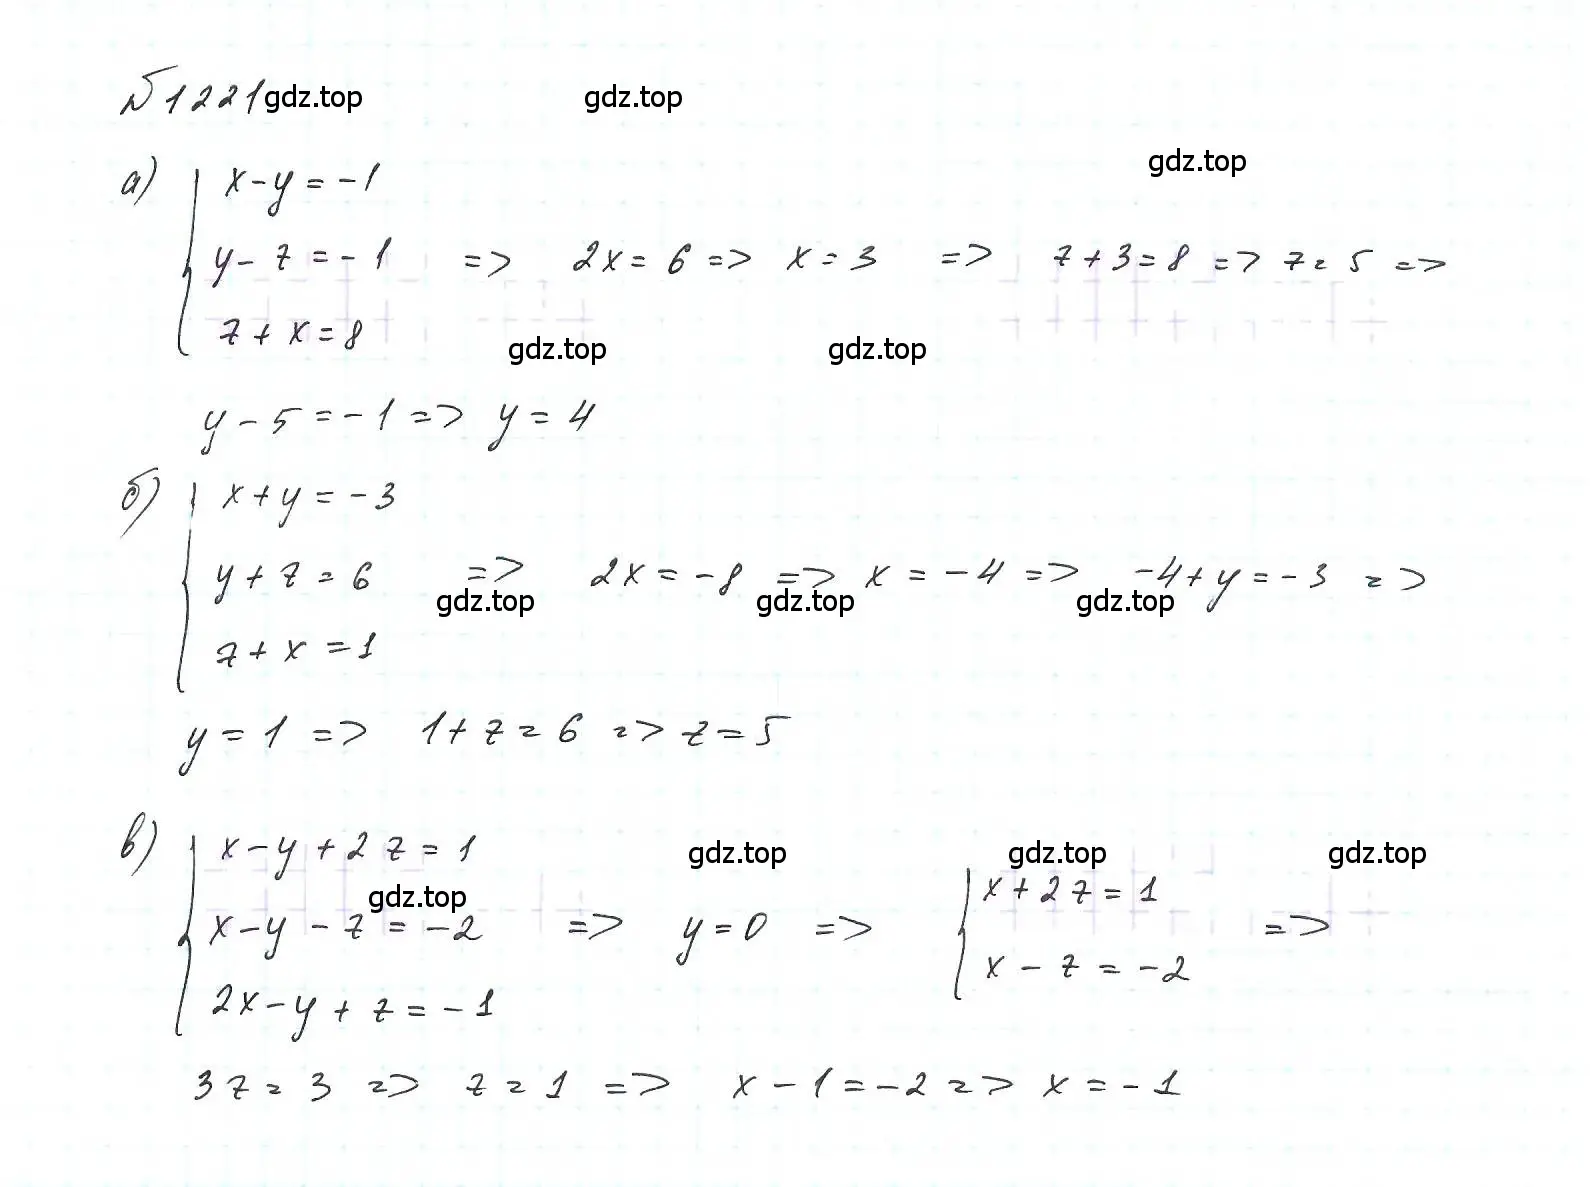 №1221 gdz.top gdz.top
gdz.top
а) x-y=-1
y-z=-1 => 2x=6 => x=3 => z+3=8 => z=5 =>
z+x=8
gdz.top gdz.top
y-5=-1 => y=4
б) x+y=-3
y+z=6 => 2x=-8 => x=-4 => -4+y=-3 =>
gdz.top gdz.top gdz.top
z+x=1
y=1 => 1+z=6 => z=5
в) x-y+2z=1
gdz.top gdz.top gdz.top
gdz.top
x-y-z=-2 => y=0 => x+2z=1
x-z=-2 =>
2x-y+z=-1
3z=3 => z=1 => x-1=-2 => x=-1